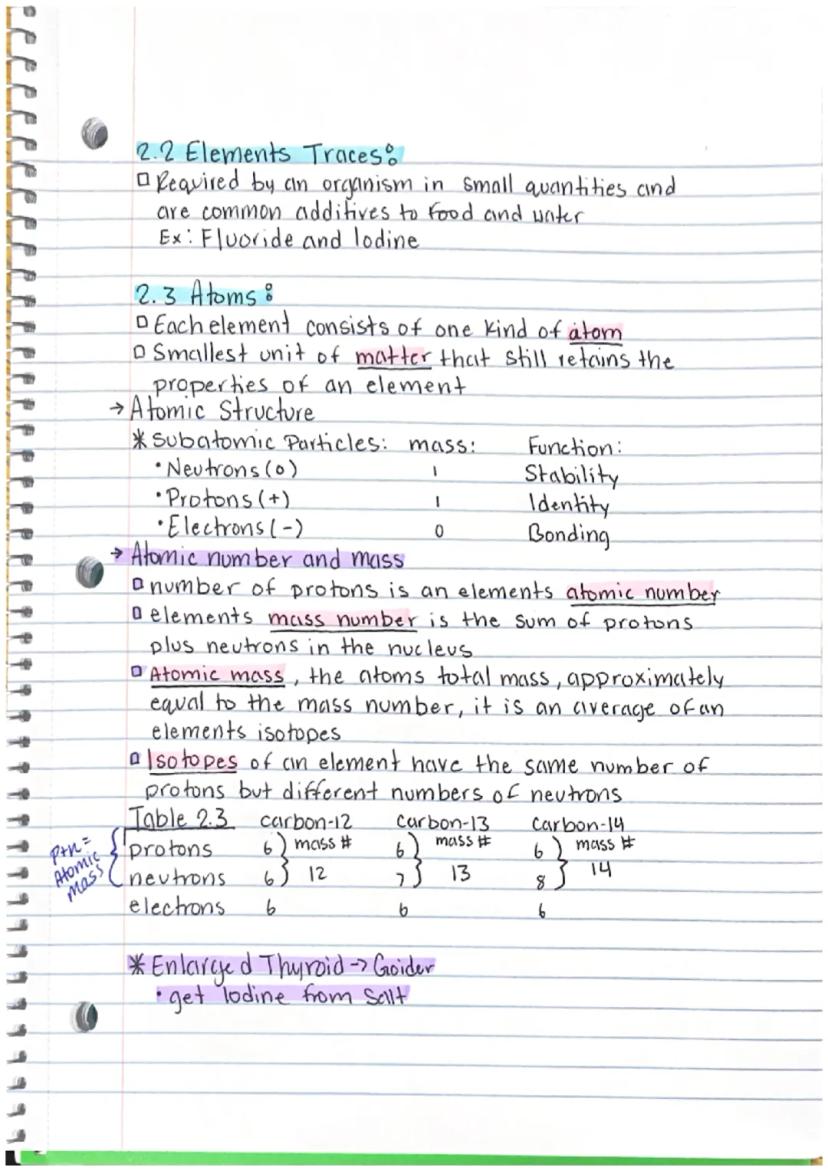 2.2 Elements Traces:
□ Required by an organism in small quantities and
are common additives to food and water
Ex: Fluoride and Iodine
2.3 Atoms:
□ Each element consists of one kind of atom
□ Smallest unit of matter that still retains the
properties of an element
→ Atomic Structure
* Subatomic Particles: mass: Function:
• Neutrons (0) 1 Stability
• Protons (+) 1 Identity
• Electrons (-) 0 Bonding
→ Atomic number and mass
□ number of protons is an elements atomic number
□ elements mass number is the sum of protons
plus neutrons in the nucleus
□ Atomic mass, the atoms total mass, approximately
equal to the mass number, it is an average of an
elements isotopes
□ Isotopes of an element have the same number of
protons but different numbers of neutrons
Table 2.3 carbon-12 carbon-13 carbon-14
P+n=
Atomic
Mass
protons 6 mass # 6 mass # 6 mass #
neutrons 6 12 7 13 8 14
electrons 6 6 6
* Enlarged Thyroid -> Goider
• get Iodine from Salt